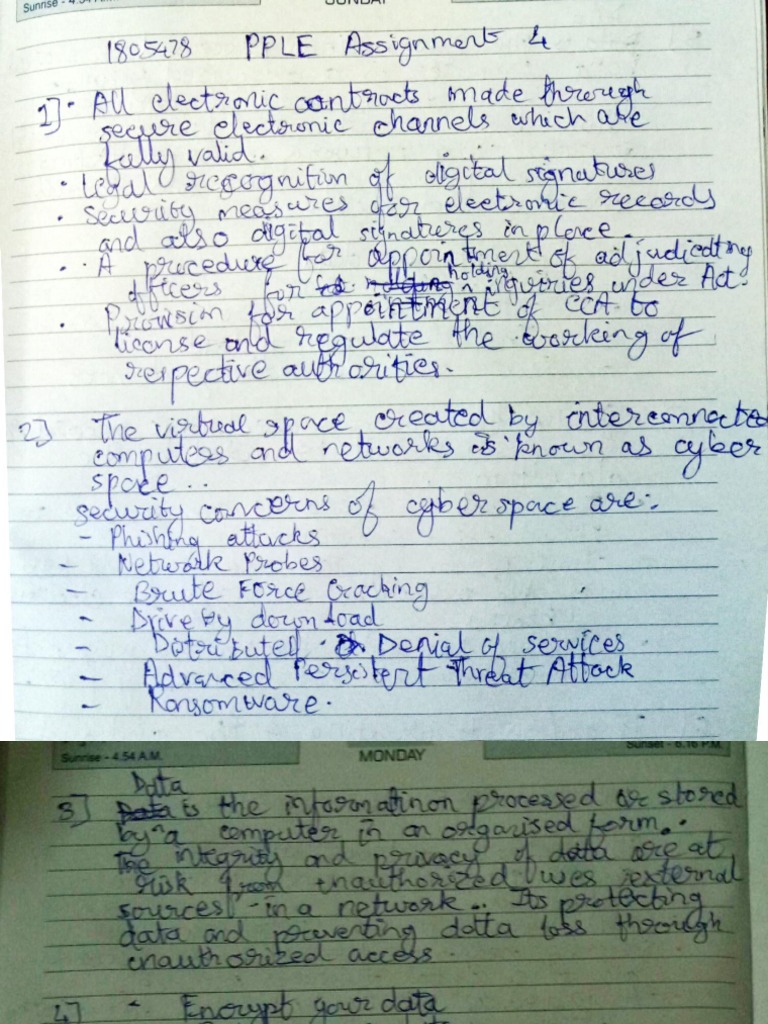 Sunrise - 4.54 A.M.
SUNDAY
1805478 PPLE Assignment 4
1] • All electronic contracts made through
secure electronic channels which are
fully valid.
• Legal recognition of digital signatures
• Security measures for electronic records
and also digital signatures in place.
• • A procedure for appointment of adjudicating
officers for holding inquiries under Act.
• Provision for appointment of CCA to
license and regulate the working of
respective authorities.
2] The virtual space created by interconnected
computers and networks is known as cyber
space..
Security concerns of cyberspace are:-
- Phishing attacks
- Network Probes
- Brute Force Cracking
- Drive by download
- Distributed Denial of services
- Advanced Persistent Threat Attack
- Ransomware.
Sunrise - 4.54 A.M.
MONDAY
Sunset - 6.16 P.M.
Data
3] Data is the informatinon processed or stored
by a computer in an organised form.
The integrity and privacy of data are at
risk from unauthorized users external
sources in a network.. Its protecting
data and preventing data loss through
unauthorized access.
4] - Encrypt your data